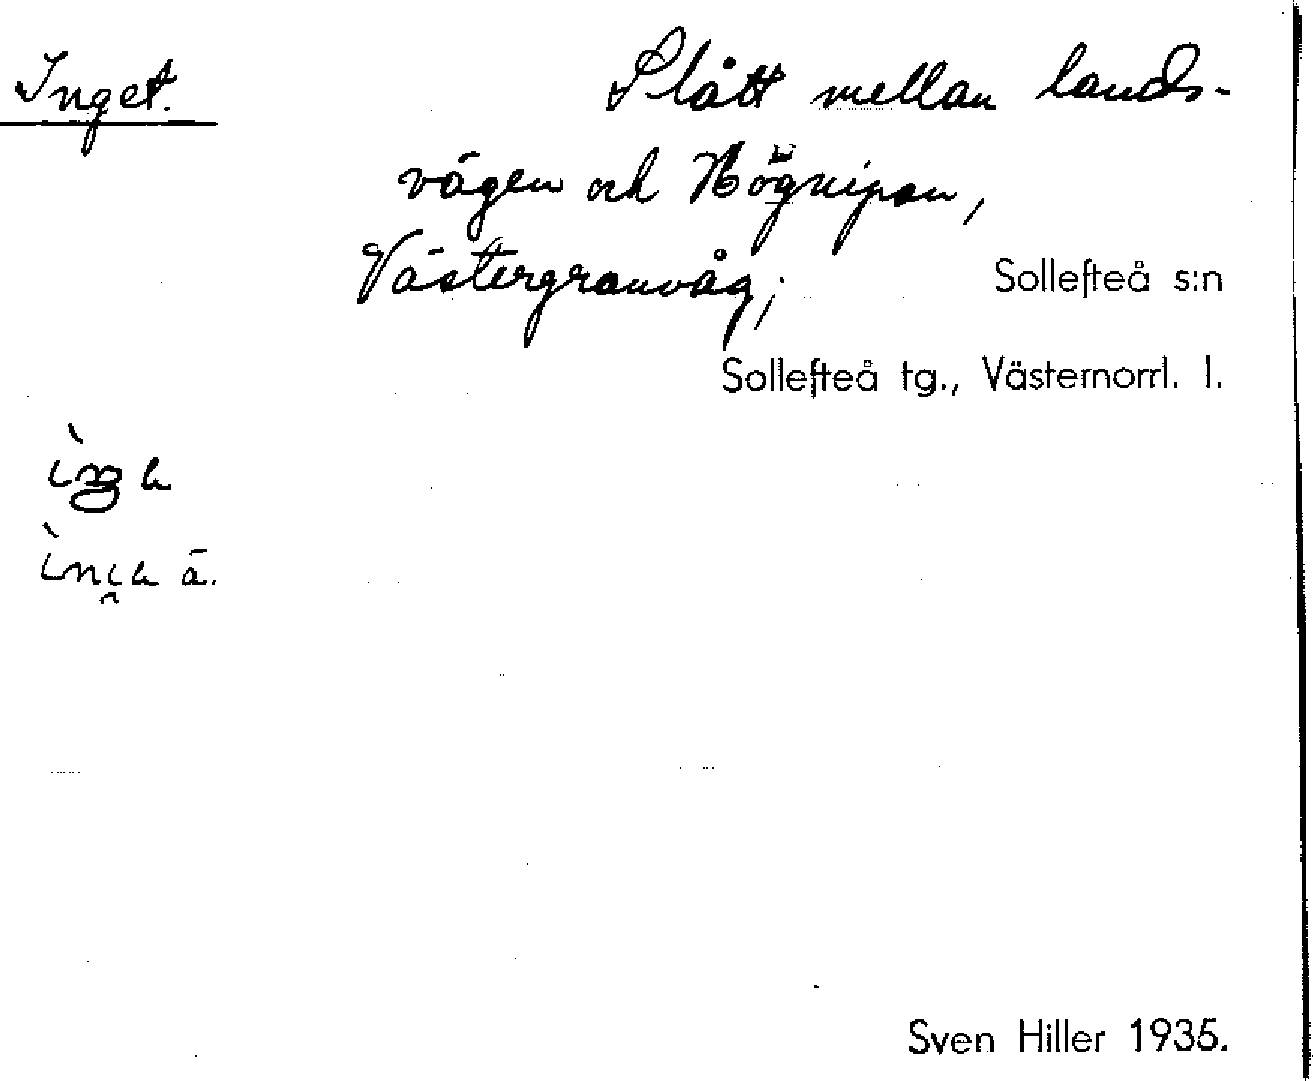 Inget. Slått mellan lands-
vägen och Högnipan,
Västergranvåg; Sollefteå s:n
Sollefteå tg., Västernorrl. l.
Sven Hiller 1935.